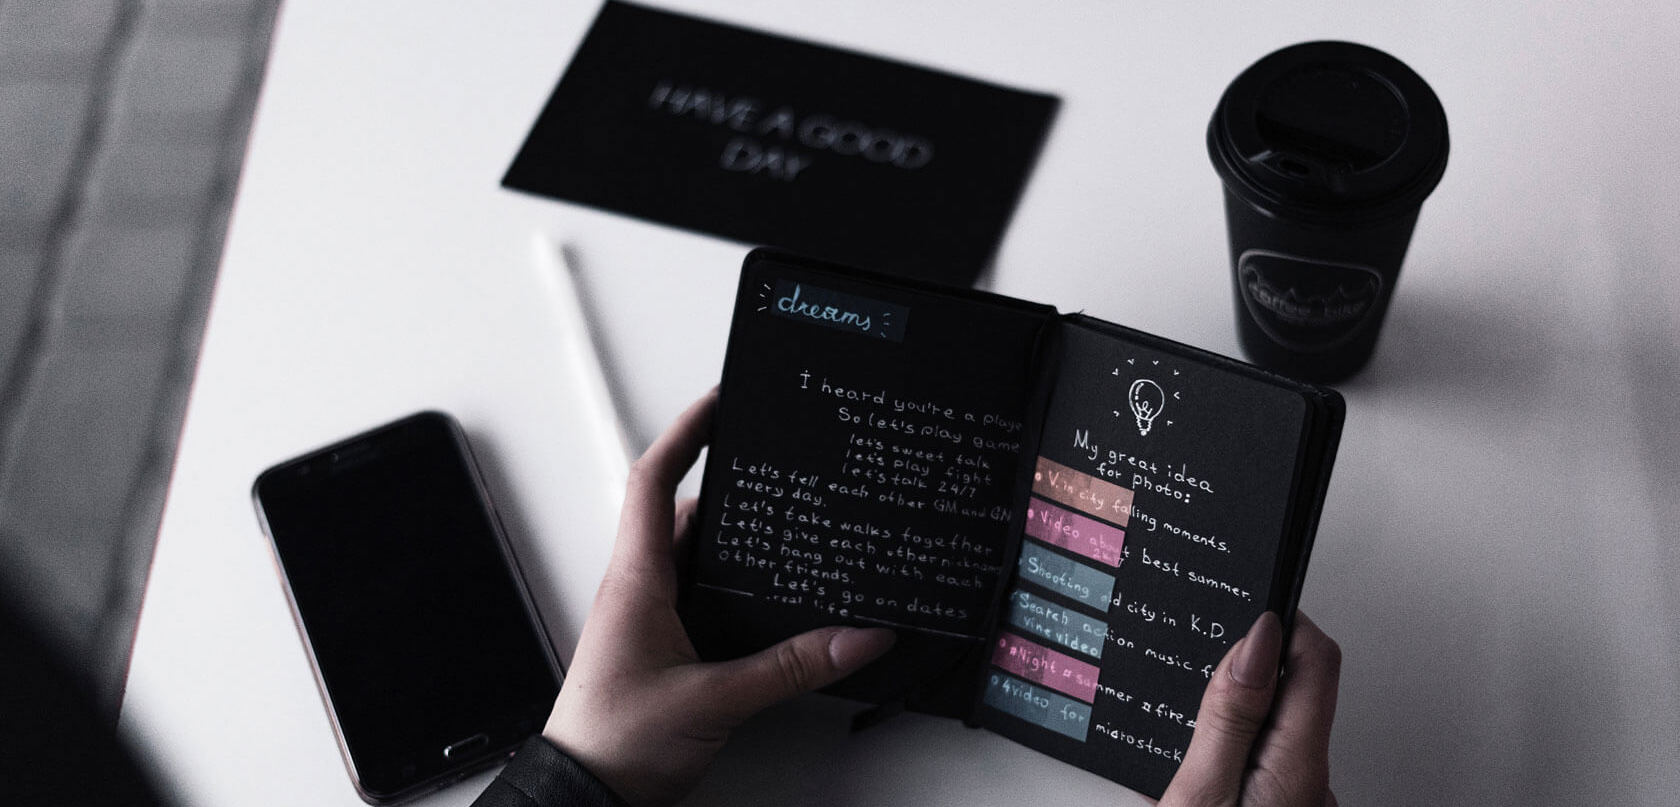 HAVE A GOOD
DAY
coffee bike
dreams
I heard you're a playe
So let's play game
let's sweet talk
let's play fight
let's talk 24/7
Let's tell each other GM and GN
every day.
Let's take walks together
Let's give each other nickname
Let's hang out with each
other friends.
Let's go on dates
real life
My great idea
for photo:
V.in city falling moments.
Video about best summer.
Shooting old city in K.D.
Search action music f
vine video
#Night #summer #fire#
4video for microstock